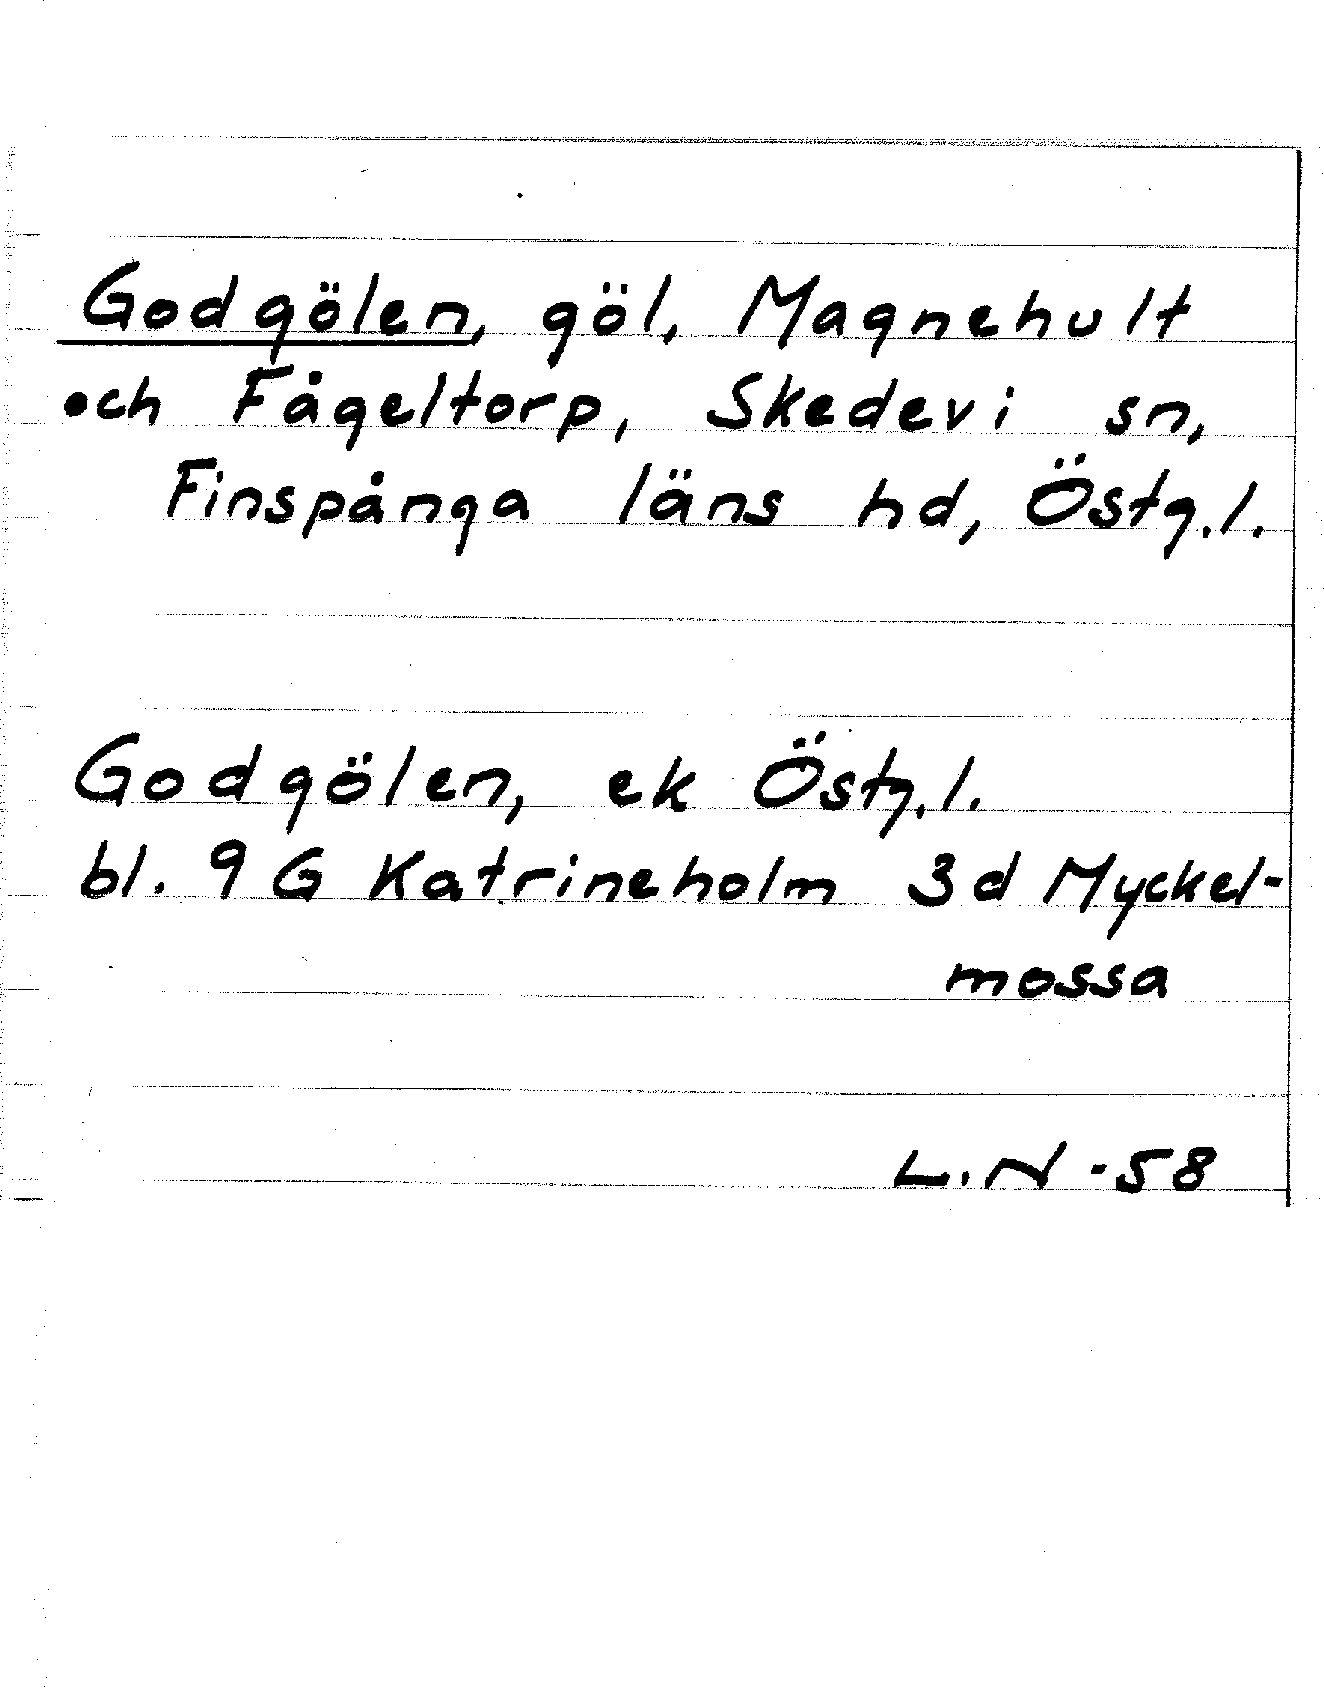 Godgölen, göl, Magnehult
och Fågeltorp, Skedevi sn,
Finspånga läns hd, Östg.l.
Godgölen, ek Östg.l.
bl. 9 G Katrineholm 3d Myckel-
mossa
L.N -58